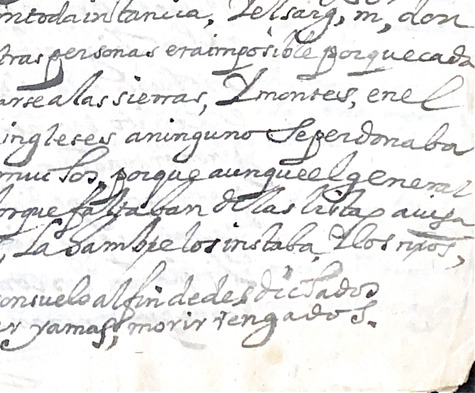 ntodainstancia, Yelsarg, m, don
tras personas eraimposible porquecada
arsealassierras, Ymontes, enel
ingleses aninguno Seperdonaba
muchos, porque aunqueelgeneral
orque faltaban dellas lista
, La hambre losinstaba, Ylos
consuelo alfindedesdichados
er yamas, morir vengados.